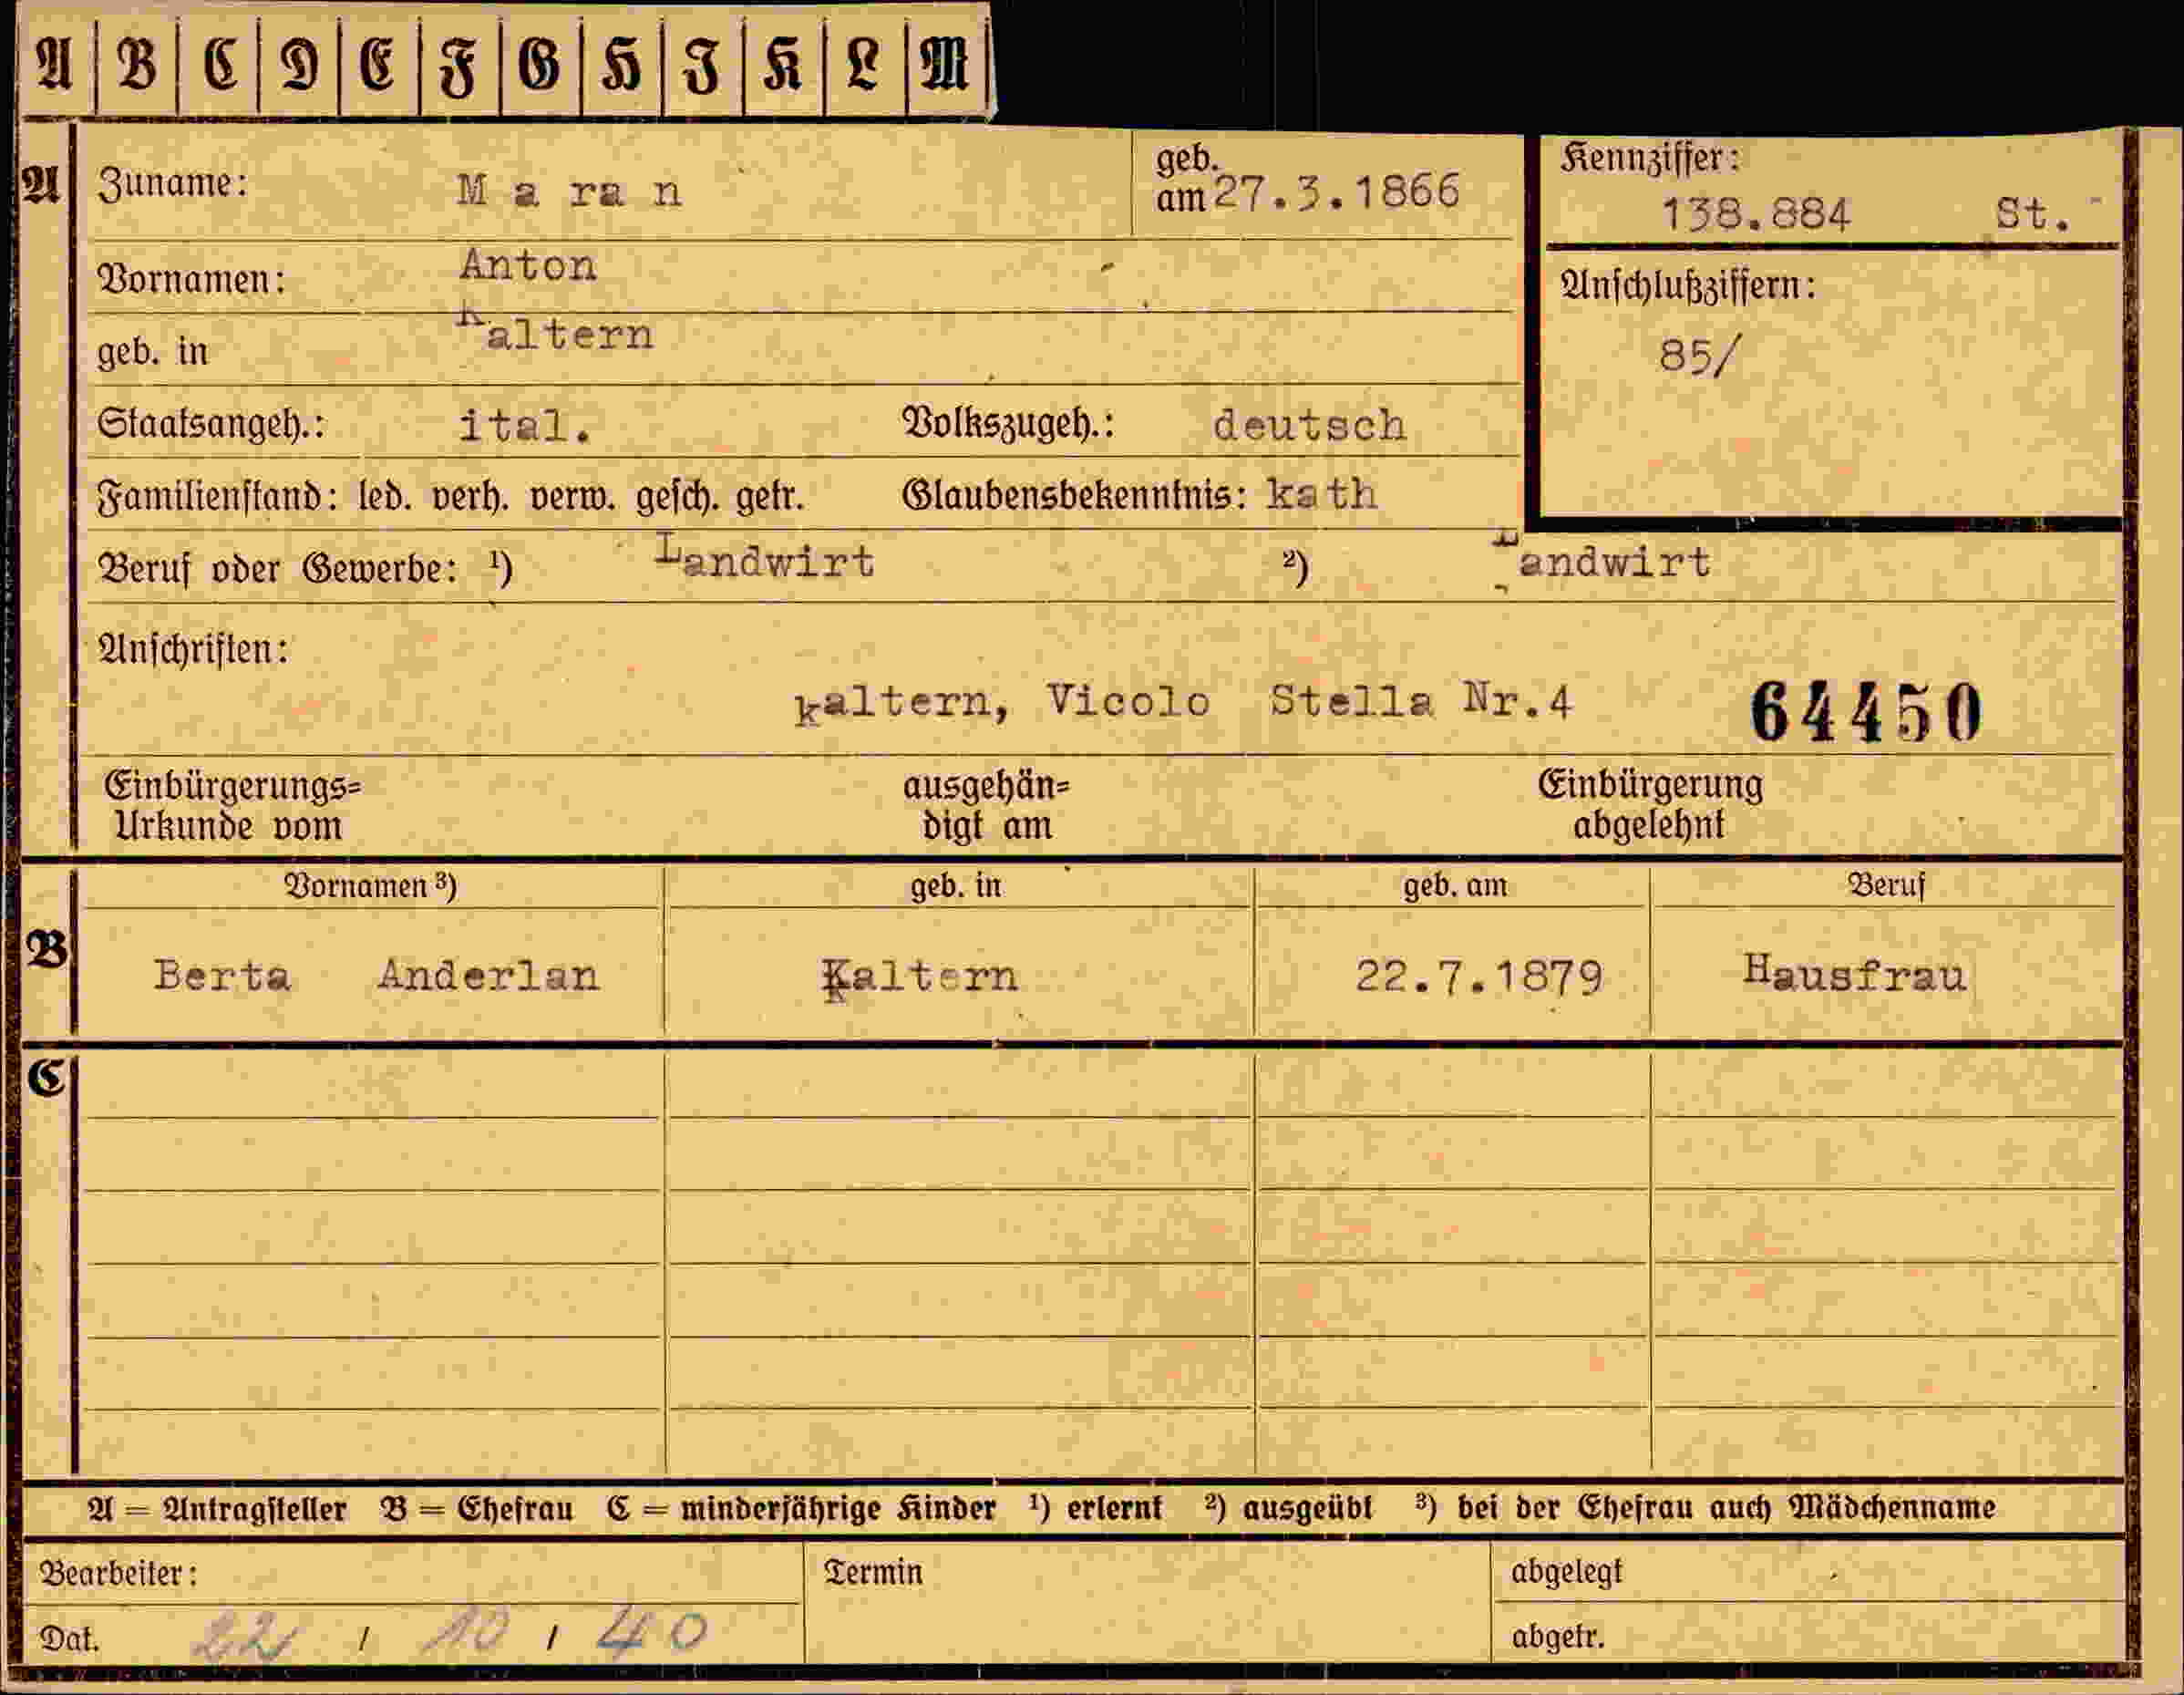 A B C D E F G H I K L M
A Zuname: M a ra n geb. am 27.3.1866 Kennziffer: 138.884 St.
Vornamen: Anton
geb. in Kaltern
Anschlußziffern:
85/
Staatsangeh.: ital. Volkszugeh.: deutsch
Familienstand: led. verh. verw. gesch. getr. Glaubensbekenntnis: kath
Beruf oder Gewerbe: ¹) Landwirt ²) Landwirt
Anschriften:
kaltern, Vicolo Stella Nr.4 64450
Einbürgerungs= ausgehän= Einbürgerung
Urkunde vom digt am abgelehnt
Vornamen ³) geb. in geb. am Beruf
B Berta Anderlan Kaltern 22.7.1879 Hausfrau
C
A = Antragsteller B = Ehefrau C = minderjährige Kinder ¹) erlernt ²) ausgeübt ³) bei der Ehefrau auch Mädchenname
Bearbeiter: Termin abgelegt
Dat. 22 / 10 / 40 abgetr.